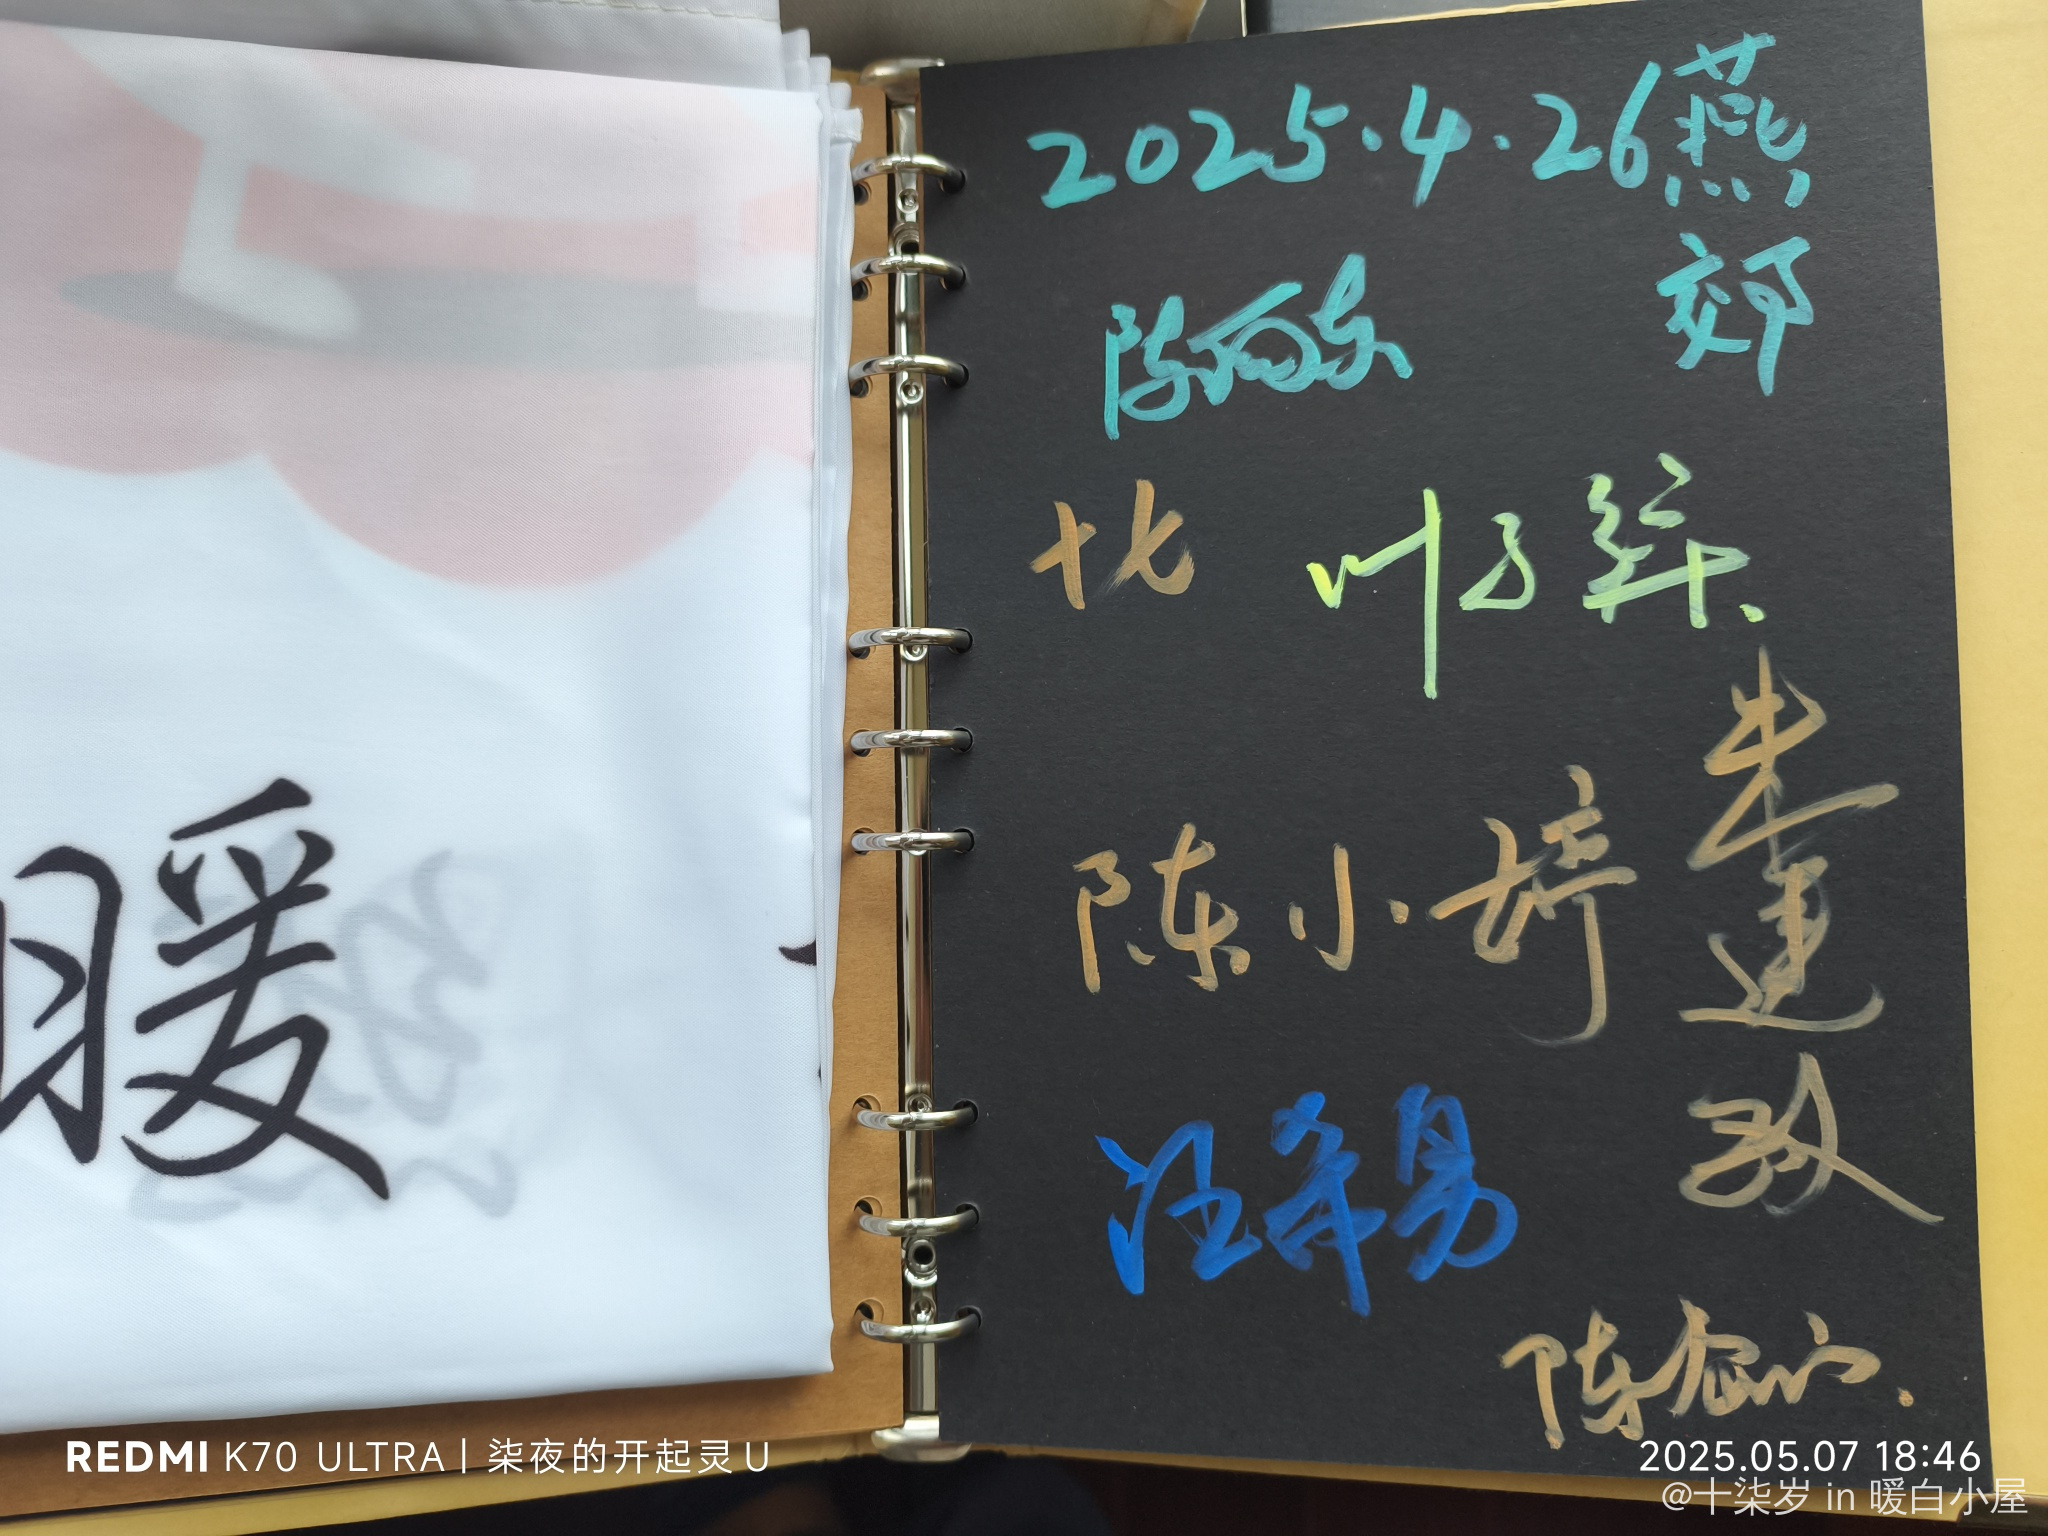 暖
2025.4.26燕
郊
陈丙东
十七
叶子绿.
朱建效
陈小婷
汪希易
REDMI K70 ULTRA | 柒夜的开起灵U
2025.05.07 18:46
@十柒岁 in 暖白小屋